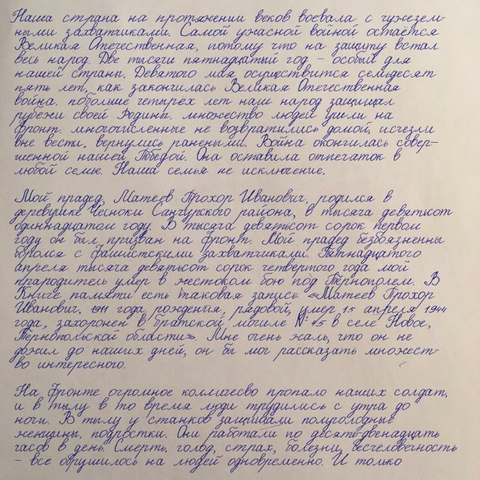 Наша страна на протяжении веков воевала с чужезем-
ными захватчиками. Самой ужасной войной остаётся
Великая Отечественная, потому что на защиту встал
весь народ. Две тысячи пятнадцатый год – особый для
нашей страны. Девятого мая осуществится семьдесят
пять лет, как закончилась Великая Отечественная
война. побольше четырёх лет наш народ защищал
рубежи своей Родины. множество людей ушли на
фронт. многочисленные не возвратились домой, исчезли
вне вести. вернулись ранеными. Война окончилась совер-
шенной нашей Победой. Она оставила отпечаток в
любой семье. Наша семья не исключение.
Мой прадед, Матеев Прохор Иванович, родился в
деревушке Чесноки Санчурского района, в тысяча девятьсот
одиннадцатом году. В тысяча девятьсот сорок первом
году он был призван на фронт. Мой прадед безбоязненны
боролся с фашистскими захватчиками. Пятнадцатого
апреля тысяча девятьсот сорок четвертого года мой
прародитель умер в жестоком бою под Тернополем. В
Книге памяти есть таковая запись «Матеев Прохор
Иванович, 1911 года рождения, рядовой, умер 15 апреля 1944
года, захоронен в братской могиле №15 в селе Новое,
Тернопольской области». Мне очень жаль, что он не
дожил до наших дней, он бы мог рассказать множест-
во интересного.
На фронте огромное колличесво пропало наших солдат,
и в тылу в то время люди трудились с утра до
ночи. В тылу у станков защищали полуголодные
женщины, подростки. Они работали по десять-двенадцать
часов в день. Смерть, голод, страх, болезни, бесчеловечность
– все обрушилось на людей одновременно. И только